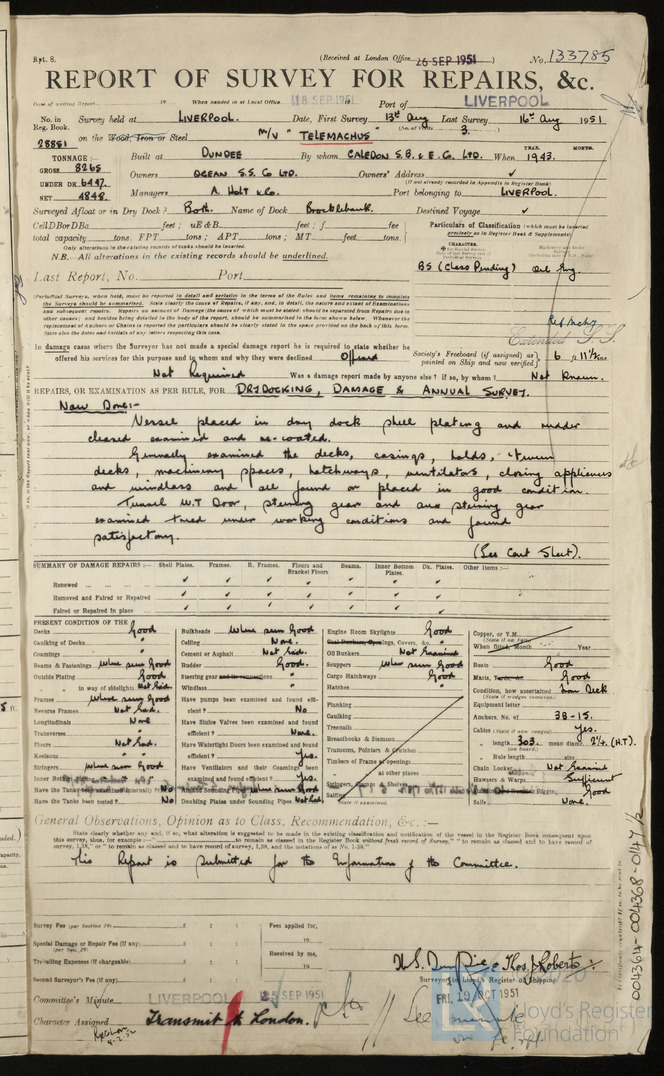 Rpt. 8.
(Received at London Office 26 SEP 1951)
No. 133785
REPORT OF SURVEY FOR REPAIRS, &c.
Date of writing Report 19 When handed in at Local Office 18 SEP 1951 19 Port of LIVERPOOL
No. in Reg. Book. Survey held at LIVERPOOL. Date, First Survey 13th Aug Last Survey 16th Aug 1951
(No. of Visits 3.)
28851 on the Wood, Iron or Steel M/V "TELEMACHUS"
TONNAGE:— Built at DUNDEE By whom CALEDON S.B. & E. Co. LTD. When 1943. YEAR. MONTH.
GROSS 8265
UNDER DK. 6447.
NET 4848.
Owners OCEAN S.S. Co LTD. Owners' Address ✓
(If not already recorded in Appendix to Register Book)
Managers A. HOLT & Co. Port belonging to LIVERPOOL.
Surveyed Afloat or in Dry Dock? Both. Name of Dock Brocklebank. Destined Voyage ✓
Cell D B or D B a feet; u E & B feet; f feet
total capacity tons. FPT tons; APT tons; MT feet tons.
N.B. All alterations in the existing records should be underlined.
Particulars of Classification (which must be inserted precisely as in Register Book & Supplements)
CHARACTER.
BS (Class Pending)
Last Report, No. Port
(Periodical Surveys, when held, must be reported in detail and seriatim in the terms of the Rules and items remaining to complete the Surveys should be summarised.
In damage cases where the Surveyor has not made a special damage report he is required to state whether he
offered his services for this purpose and to whom and why they were declined Offered
Not Required Was a damage report made by anyone else? if so, by whom? Not known.
Society's Freeboard (if assigned) as painted on Ship and now verified 6 ft 11¼ ins.
REPAIRS, OR EXAMINATION AS PER RULE, FOR DRYDOCKING, DAMAGE & ANNUAL SURVEY.
Now Done:-
Vessel placed in dry dock shell plating and rudder
cleaned examined and re-coated.
Generally examined the decks, casings, holds, 'tween
decks, machinery spaces, hatchways, ventilators, closing appliances
and windlass and all found or placed in good condition.
Tunnel W.T Door, steering gear and aux steering gear
examined tried under working conditions and found
satisfactory.
(See Cont Sheet).
SUMMARY OF DAMAGE REPAIRS:— Shell Plates. Frames. R. Frames. Floors and Bracket Floors Beams. Inner Bottom Plates. Dk. Plates. Other Items:—
Renewed ✓ ✓ ✓ ✓ ✓ ✓ ✓
Removed and Faired or Repaired ✓ ✓ ✓ ✓ ✓ ✓ ✓
Faired or Repaired in place ✓ ✓ ✓ ✓ ✓ ✓ ✓
PRESENT CONDITION OF THE
Decks Good
Caulking of Decks "
Coamings "
Beams & Fastenings Where seen Good
Outside Plating Good
" in way of sidelights Not Exd.
Frames Where seen Good
Reverse Frames Not Exd.
Longitudinals None
Transverses "
Floors Not Exd.
Keelsons "
Stringers Where seen Good
Inner Bottom
Have the Tanks been examined internally? No
Have the Tanks been tested? No
Bulkheads Where seen Good
Ceiling None.
Cement or Asphalt Not Exd.
Rudder Good.
Steering gear and its connections "
Windlass "
Have pumps been examined and found efficient? No
Have Sluice Valves been examined and found efficient? None.
Have Watertight Doors been examined and found efficient? Yes.
Have Ventilators and their Coamings been examined and found efficient? Yes.
Doubling Plates under Sounding Pipes Not Exd.
Engine Room Skylights Good
Oil Bunkers Not Examined
Scuppers Where seen Good
Cargo Hatchways Good
Hatches "
Planking
Caulking
Treenails
Breasthooks & Stemson
Transoms, Pointers, & Crutches
Timbers of Frame at openings
" " at other places
Copper, or Y.M.
(State if on Felt)
When fitted, Month Year
Boats Good
Masts, Good
Condition, how ascertained from Deck
Equipment letter
Anchors, No. of 3B-1S.
Cables (State if now ranged) Yes.
" length 303. mean diamr. 2¼. (H.T.)
(on board)
" Rule length size
Chain Locker Not Examined
Hawsers & Warps Sufficient
Rigging Good
Sails None.
General Observations, Opinion as to Class, Recommendation, &c.:—
This Report is submitted for the Information of the Committee.
Survey Fee (per Section 29) £ : :
Special Damage or Repair Fee (if any) (per Sec. 29) £ : :
Travelling Expenses (if chargeable) £ : :
Second Surveyor's Fee (if any) £ : :
Fees applied for, 19
Received by me, 19
Thos J Roberts
Surveyors to Lloyd's Register of Shipping
FRI. 19 OCT 1951
Committee's Minute LIVERPOOL 25 SEP 1951
Character Assigned Transmit to London.
004364-004368-0147 1/2
Lloyd's Register
Foundation